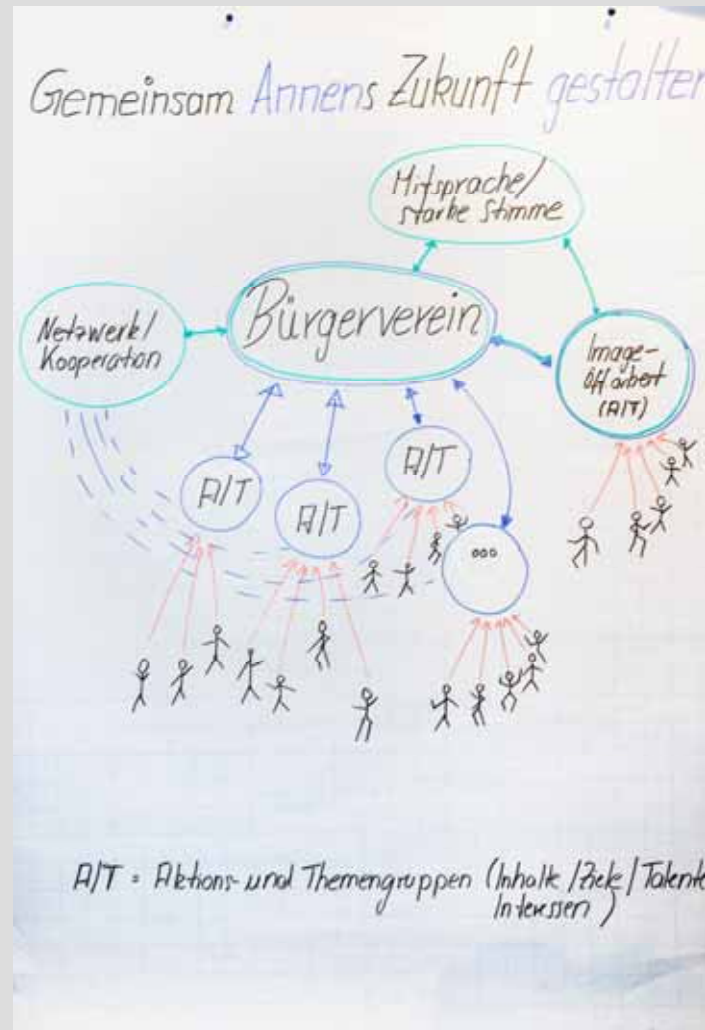 Gemeinsam Annens Zukunft gestalten
Mitsprache/
starke Stimme
Netzwerk/
Kooperation
Bürgerverein
Image-
öff arbeit
(A/T)
A/T
A/T
A/T
ooo
A/T = Aktions- und Themengruppen (Inhalte/Ziele/Talente
Interessen)